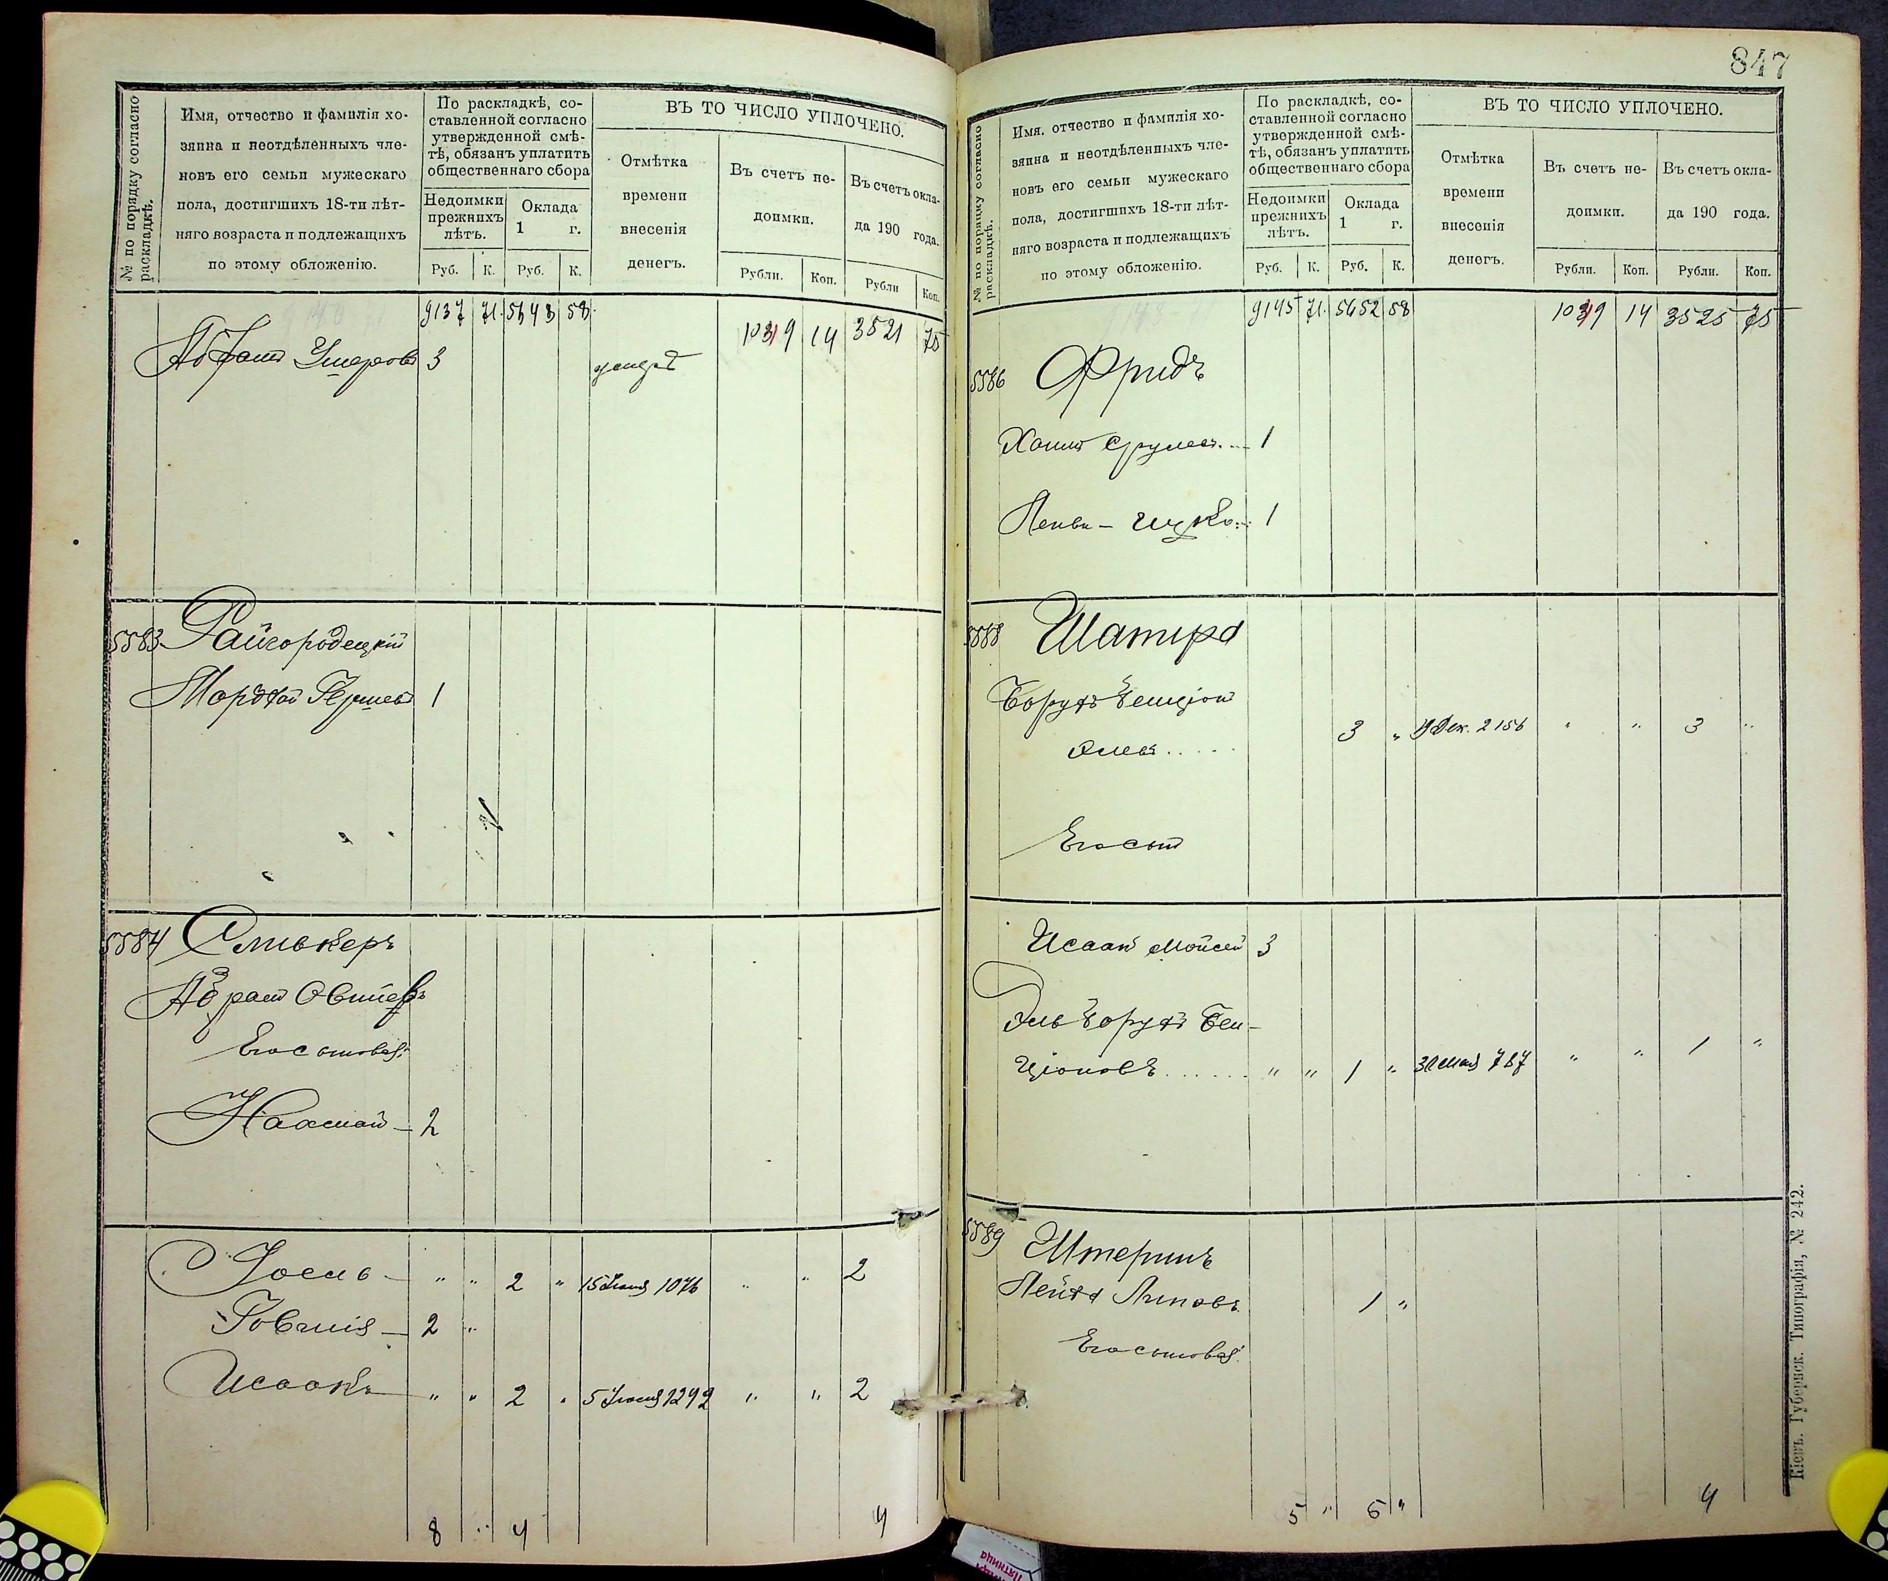 № по порядку согласно раскладкѣ.
Имя, отчество и фамилія хо-
зяина и неотдѣленныхъ чле-
новъ его семьи мужескаго
пола, достигшихъ 18-ти лѣт-
няго возраста и подлежащихъ
по этому обложенію.
По раскладкѣ, со-
ставленной согласно
утвержденной смѣ-
тѣ, обязанъ уплатить
общественнаго сбора
Недоимки
прежнихъ
лѣтъ.
Оклада
1 г.
Руб. К. Руб. К.
ВЪ ТО ЧИСЛО УПЛОЧЕНО.
Отмѣтка
времени
внесенія
денегъ.
Въ счетъ не-
доимки.
Въ счетъ окла-
да 190 года.
Рубли. Коп. Рубли Коп.
9137 71 5643 58 1039 14 3521 75
Абрам 3
5583 Райгородецкій
Мордхай Гершев 1
5584 Сливкеръ
Абрам
Его сыновья:
Нахман 2
Іосель " " 2 " 15 1076 " " 2
2 "
Исаакъ " " 2 " 5 1292 " " 2
8 " 4 4
847
№ по порядку согласно раскладкѣ.
Имя. отчество и фамилія хо-
зяина и неотдѣленныхъ чле-
новъ его семьи мужескаго
пола, достигшихъ 18-ти лѣт-
няго возраста и подлежащихъ
по этому обложенію.
По раскладкѣ, со-
ставленной согласно
утвержденной смѣ-
тѣ, обязанъ уплатить
общественнаго сбора
Недоимки
прежнихъ
лѣтъ.
Оклада
1 г.
Руб. К. Руб. К.
ВЪ ТО ЧИСЛО УПЛОЧЕНО.
Отмѣтка
времени
внесенія
денегъ.
Въ счетъ не-
доимки.
Въ счетъ окла-
да 190 года.
Рубли. Коп. Рубли. Коп.
9145 71 5652 58 1039 14 3525 75
5586 Фридъ
Хаим Срулев 1
Лейви – Ицко 1
5588 Шапира
Борухъ Бенціон
3 " Дек. 2156 " " 3 "
Его сын
Исаак Мойсей 3
Эль Борухъ Бен-
ціоновъ " " 1 " 787 " " 1 "
5589 Штеринъ
Лейба Липовъ 1 "
Его сыновья:
5 " 5 " 4
Кіевъ. Губернск. Типографія, № 242.
Пятница